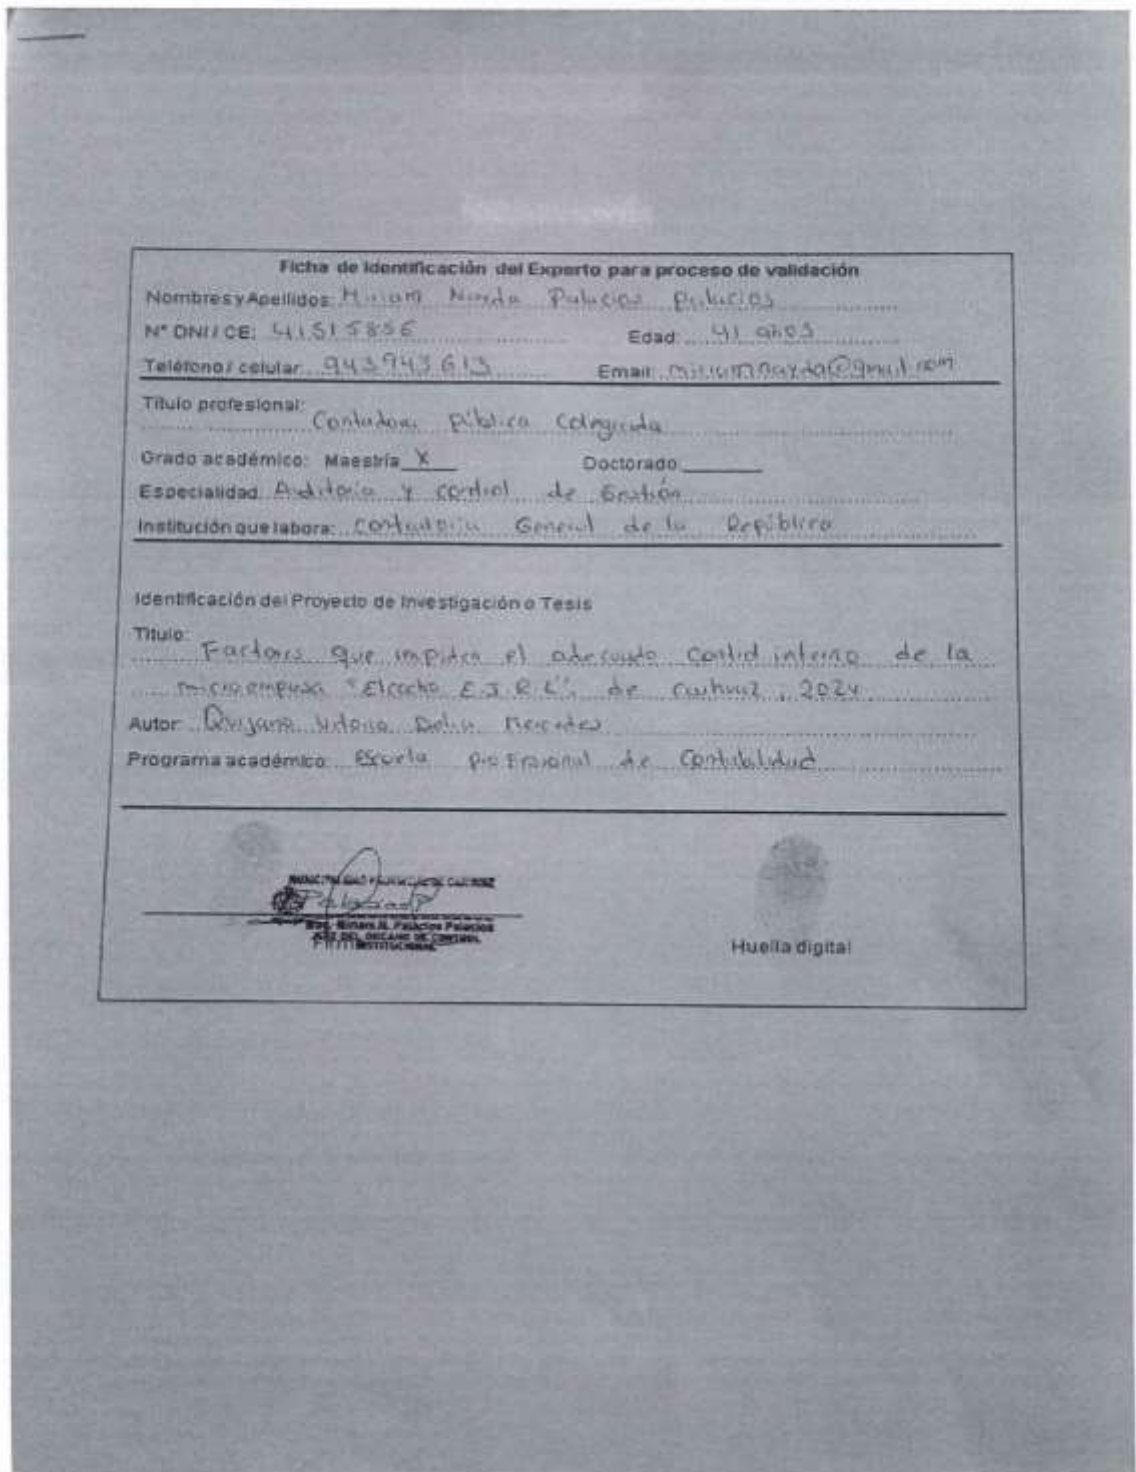 Ficha de Identificación del Experto para proceso de validación
Nombres y Apellidos: Miriam Palacios Palacios
N° DNI / CE: 41515856 Edad: 41 años
Teléfono / celular: 943943613 Email:
Título profesional:
Contadora Pública Colegiada
Grado académico: Maestría X Doctorado
Especialidad: Auditoria y control de Gestión
Institución que labora: Contraloria General de la República
Identificación del Proyecto de Investigación o Tesis
Título:
Factores que impiden el adecuado control interno de la
microempresa E.I.R.L", de Carhuaz, 2024
Autor: Quijano Delia Mercedes
Programa académico: Escuela profesional de Contabilidad
MUNICIPALIDAD PROVINCIAL DE CARHUAZ
PalaciosP
Mag. Miriam N. Palacios Palacios
JEFE DEL ORGANO DE CONTROL
INSTITUCIONAL
Huella digital